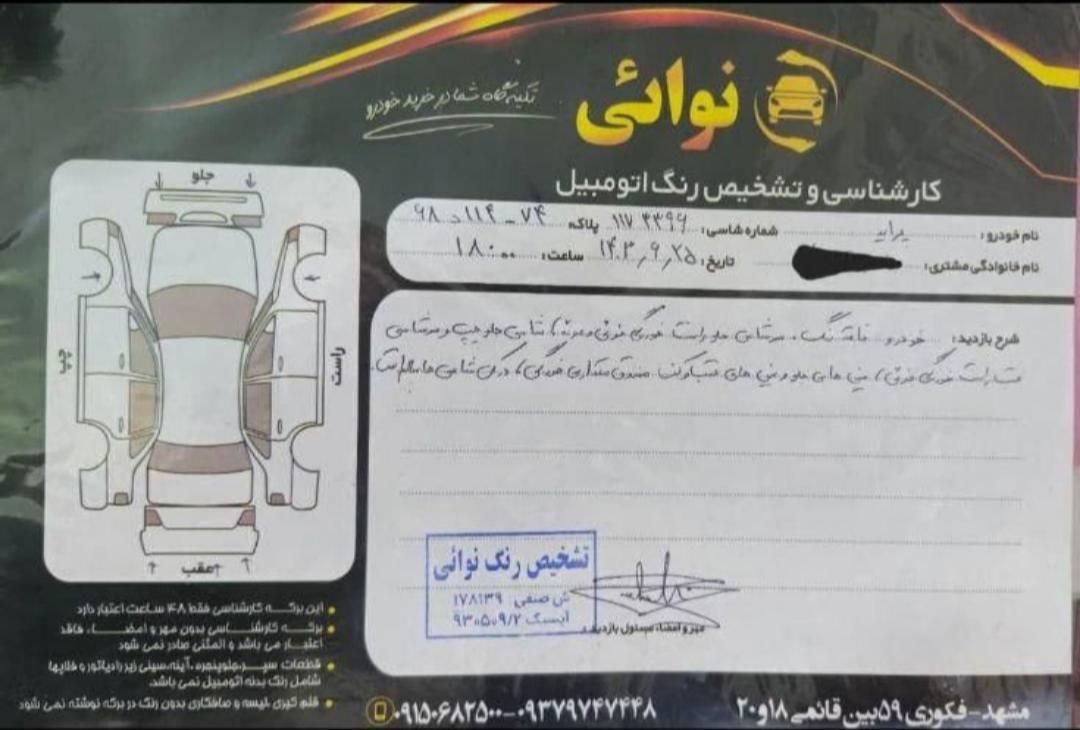 نوائی
تکیه گاه شما در خرید خودرو
کارشناسی و تشخیص رنگ اتومبیل
نام خودرو: پراید شماره شاسی: ۱۱۷۳۳۹۶ پلاک: ۷۴-۱۱۴د۶۸
نام خانوادگی مشتری: تاریخ: ۱۴۰۳/۹/۲۵ ساعت: ۱۸:۰۰
جلو
چپ
راست
عقب
شرح بازدید: خودرو فاقد رنگ، سرشاسی جلو راست خوردگی جزئی دارد، شاسی جلو چپ و سرشاسی
راست خوردگی جزئی، سینی های جلو و سینی های عقب صندوق مقداری خوردگی، کد شاسی ها سالم است
تشخیص رنگ نوائی
ش صنفی: ۱۷۸۱۳۹
آیسک ۹۳۰۵۰۹/۲
مهر و امضاء مسئول بازدید
این برگه کارشناسی فقط ۴۸ ساعت اعتبار دارد
برگه کارشناسی بدون مهر و امضاء، فاقد
اعتبار می باشد و المثنی صادر نمی شود
قطعات سپر، جلوپنجره، آینه، سینی زیر رادیاتور و قلاپها
شامل رنگ بدنه اتومبیل نمی باشد.
قلم گیری، لیسه و صافکاری بدون رنگ در برگه نوشته نمی شود
مشهد-فکوری ۵۹ بین قائمی ۱۸و۲۰
۰۹۱۵۰۶۸۲۵۰۰-۰۹۳۷۹۷۴۷۴۴۸